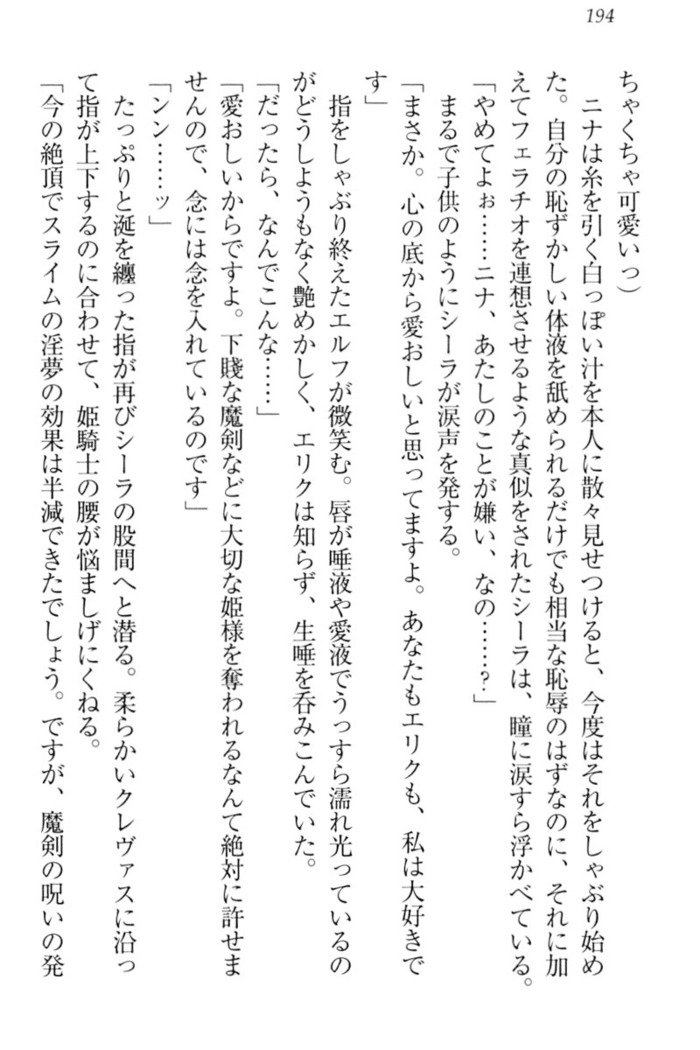 194
ちゃくちゃ可愛いっ)
　ニナは糸を引く白っぽい汁を本人に散々見せつけると、今度はそれをしゃぶり始め
た。自分の恥ずかしい体液を舐められるだけでも相当な恥辱のはずなのに、それに加
えてフェラチオを連想させるような真似をされたシーラは、瞳に涙すら浮かべている。
「やめてよぉ……ニナ、あたしのことが嫌い、なの……?」
　まるで子供のようにシーラが涙声を発する。
「まさか。心の底から愛おしいと思ってますよ。あなたもエリクも、私は大好きで
す」
　指をしゃぶり終えたエルフが微笑む。唇が唾液や愛液でうっすら濡れ光っているの
がどうしようもなく艶めかしく、エリクは知らず、生唾を呑みこんでいた。
「だったら、なんでこんな……」
「愛おしいからですよ。下賤な魔剣などに大切な姫様を奪われるなんて絶対に許せま
せんので、念には念を入れているのです」
「ンン……ッ」
　たっぷりと涎を纏った指が再びシーラの股間へと潜る。柔らかいクレヴァスに沿っ
て指が上下するのに合わせて、姫騎士の腰が悩ましげにくねる。
「今の絶頂でスライムの淫夢の効果は半減できたでしょう。ですが、魔剣の呪いの発